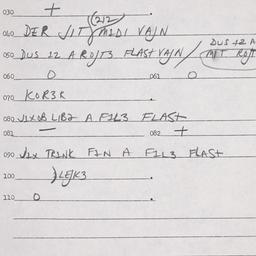 030. +
040. DER JIT (212) MIDI VAJN
050. DUS 12 A ROJT3 FLAST VAJN / DUS 12 A MIT ROJT
060. O 061 O
070. KOR3R
080. JIX OB LIB3 A FIL3 FLAST
081. — 082 +
090. JIX TRINK FIN A FIL3 FLAST
100. JLEJK3
110. O